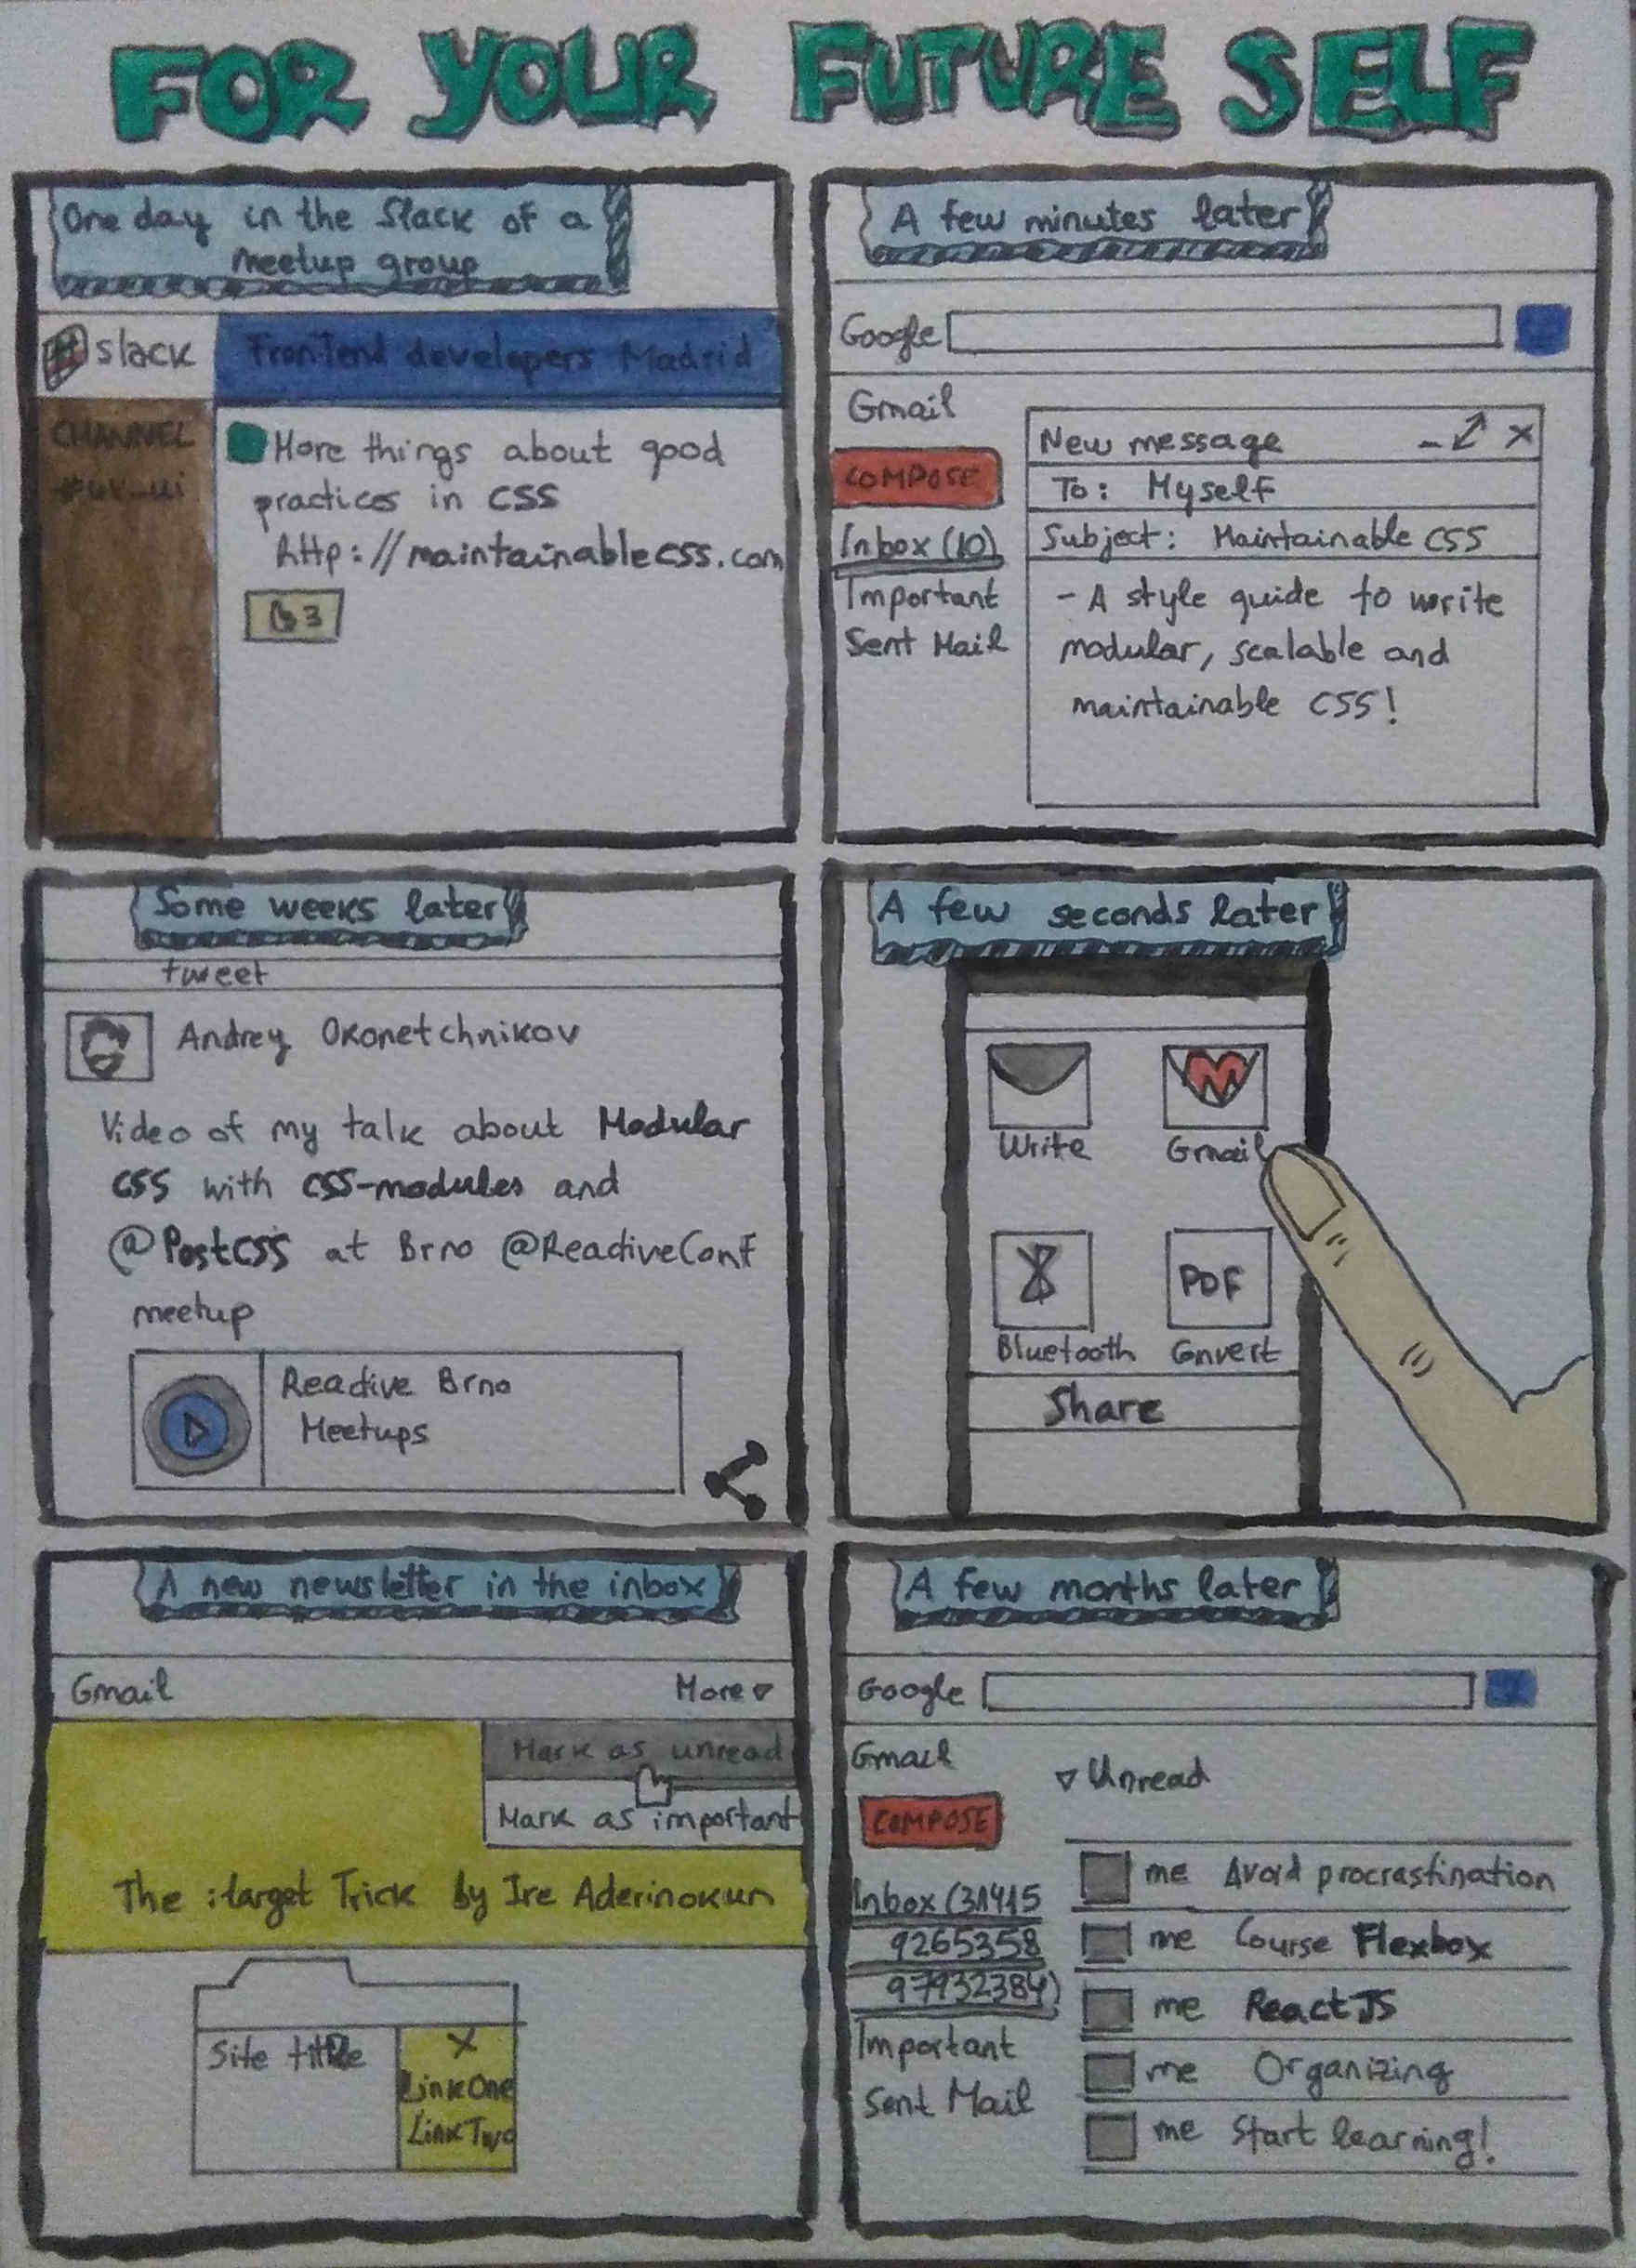 FOR YOUR FUTURE SELF
One day in the Slack of a
meetup group
slack
Frontend developers Madrid
CHANNEL
#ux_ui
More things about good
practices in CSS
http://maintainablecss.com
3
A few minutes later
Google
Gmail
COMPOSE
Inbox (10)
Important
Sent Mail
New message
To: Myself
Subject: Maintainable CSS
- A style guide to write
modular, scalable and
maintainable CSS!
Some weeks later
tweet
Andrey Okonetchnikov
Video of my talk about Modular
CSS with CSS-modules and
@PostCSS at Brno @ReactiveConf
meetup
Reactive Brno
Meetups
A few seconds later
Write
Gmail
PDF
Bluetooth
Convert
Share
A new newsletter in the inbox
Gmail
More
Mark as unread
Mark as important
The :target Trick by Ire Aderinokun
Site title
X
Link One
Link Two
A few months later
Google
Gmail
COMPOSE
Inbox (31415
9265358
97932384)
Important
Sent Mail
Unread
me Avoid procrastination
me Course Flexbox
me ReactJS
me Organizing
me Start learning!